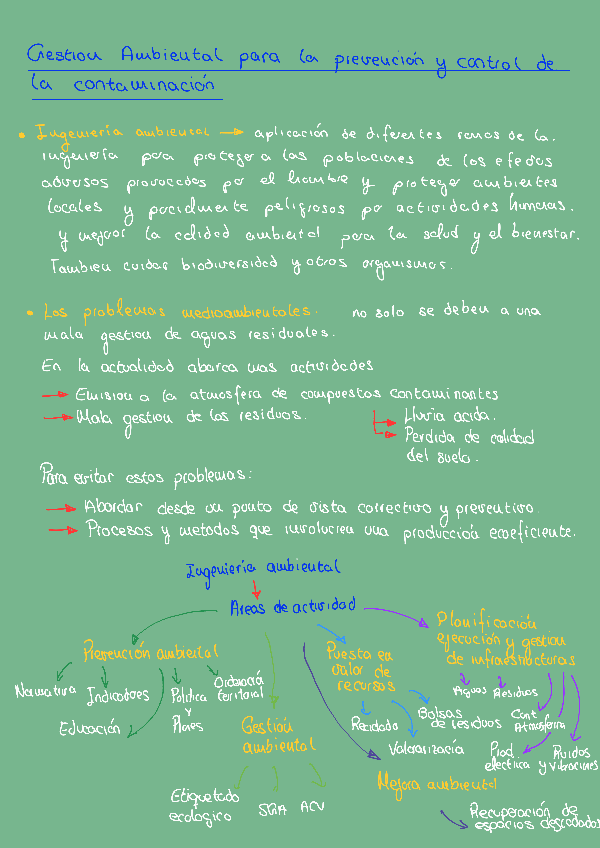 Gestion Ambiental para la prevención y control de
la contaminación
• Ingeniería ambiental → aplicación de diferentes ramas de la
ingeniería para proteger a las poblaciones de los efectos
adversos provocados por el hombre y proteger ambientes
locales y pocialmente peligrosos por actividades humanas.
y mejorar la calidad ambiental para la salud y el bienestar.
Tambien cuidar biodiversidad y otros organismos.
• Los problemas medioambientales. no solo se deben a una
mala gestion de aguas residuales.
En la actualidad abarca mas actividades
→ Emision a la atmosfera de compuestos contaminantes
→ Mala gestion de los residuos. → Lluvia acida.
→ Perdida de calidad
del suelo.
Para evitar estos problemas:
→ Abordar desde un punto de vista correctivo y preventivo.
→ Procesos y metodos que involucren una producción ecoeficiente.
Ingeniería ambiental
Areas de actividad
Prevención ambiental
Normativa
Indicadores
Politica
y
Planes
Ordenació
territorial
Educación
Gestion
ambiental
Etiquetado
ecologico
SGA
ACV
Puesta en
valor de
recursos
Reciclado
Bolsas
de residuos
Valorarizacia
Mejora ambiental
Recuperación de
espacios degradados
Planificación
ejecución y gestion
de infraestructuras
Aguas
Residuos
Cont
Atmosferica
Prod.
electrica
Ruidos
y vibraciones